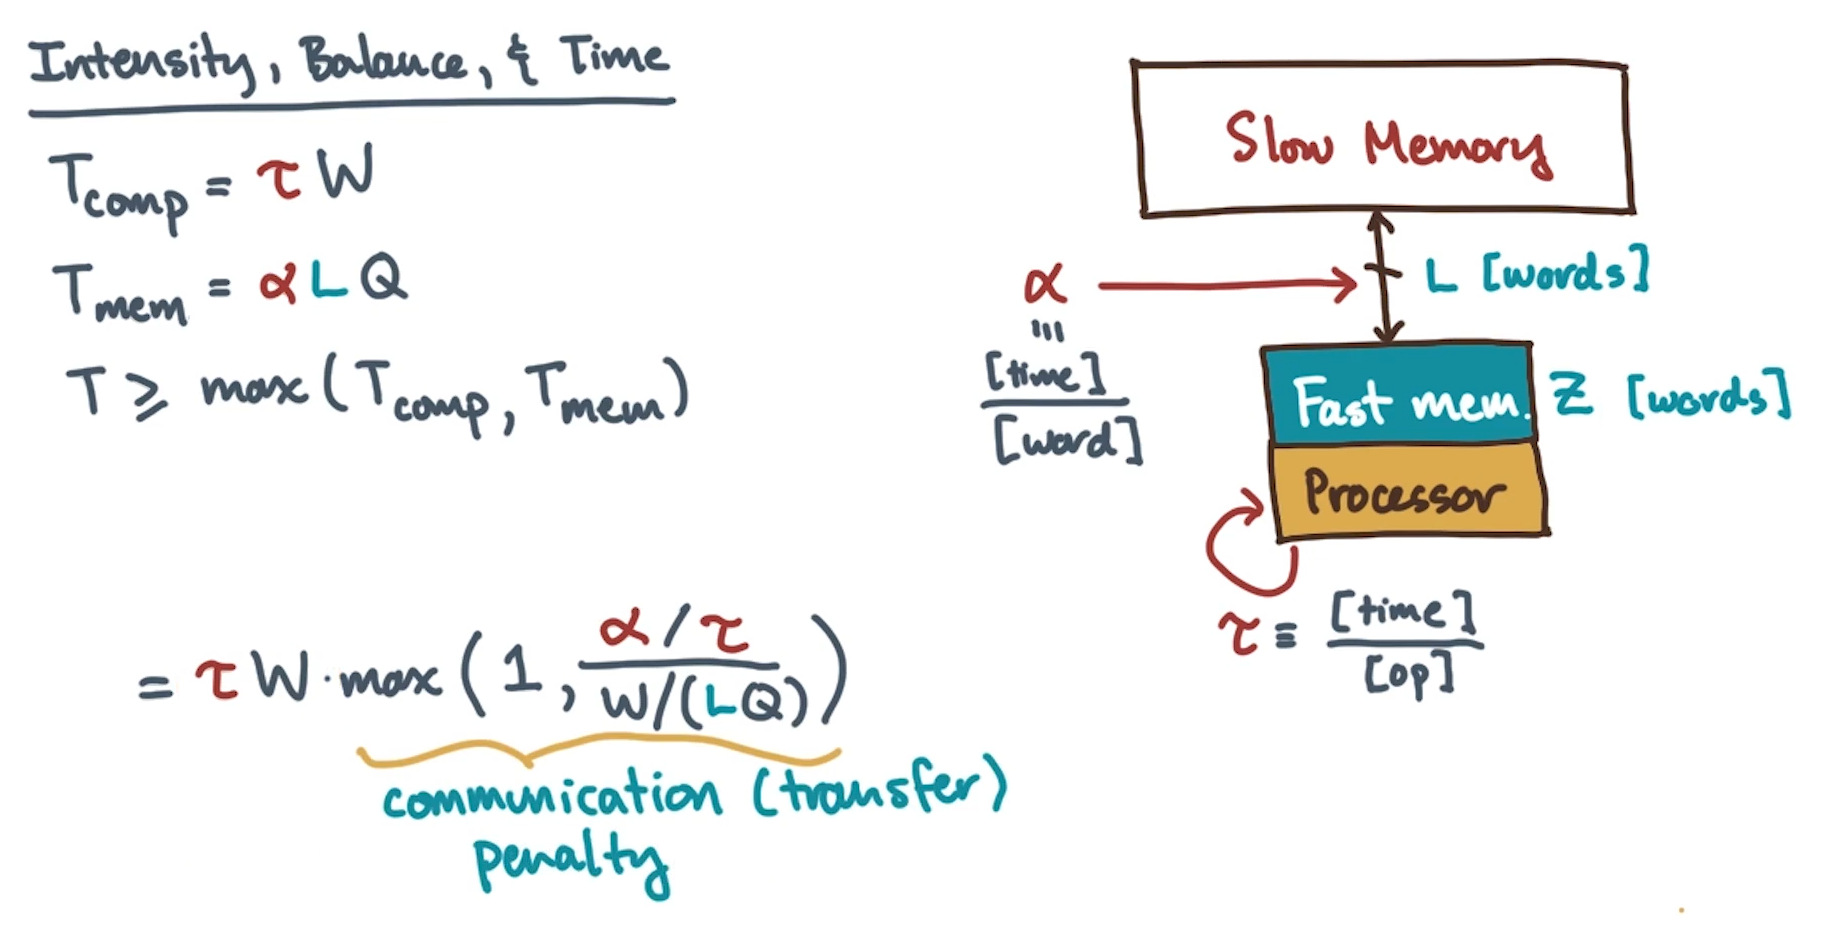 Intensity, Balance, & Time
T_comp = τ W
T_mem = α L Q
T ⩾ max ( T_comp, T_mem )
= τ W · max ( 1, α / τ / W/(LQ) )
communication (transfer)
penalty
Slow Memory
α
≡
[time]
[word]
L [words]
Fast mem.
Z [words]
Processor
τ ≡ [time]
[op]